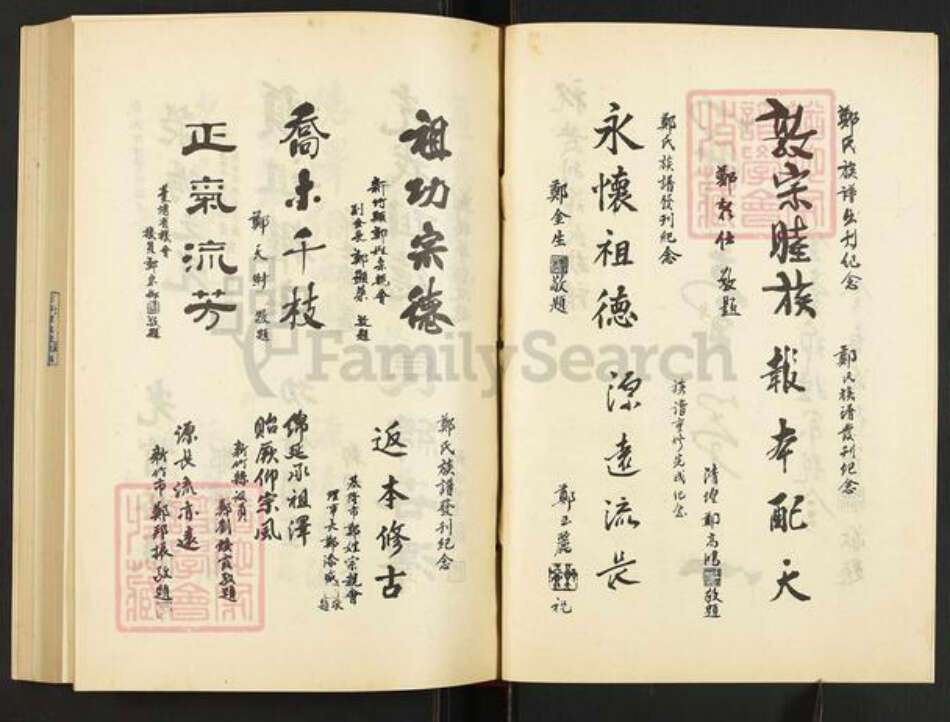 鄭氏族譜出刊紀念
敦宗睦族
敬題
鄭氏族譜發刊紀念
報本配天
清德鄭高鴻敬題
鄭氏族譜發刊紀念
永懷祖德
鄭金生敬題
族譜重修完成紀念
源遠流長
鄭玉麗祝
祖功宗德
新竹縣鄭姓宗親會
副會長鄭顯榮敬題
喬木千枝
鄭天財敬題
正氣流芳
臺灣省議會
議員鄭敬題
鄭氏族譜發刊紀念
返本修古
基隆市鄭姓宗親會
理事長鄭添盛敬題
綿延承祖澤
貽厥仰宗風
新竹縣議員
敬題
源長流亦遠
新竹市鄭邦振敬題
FamilySearch